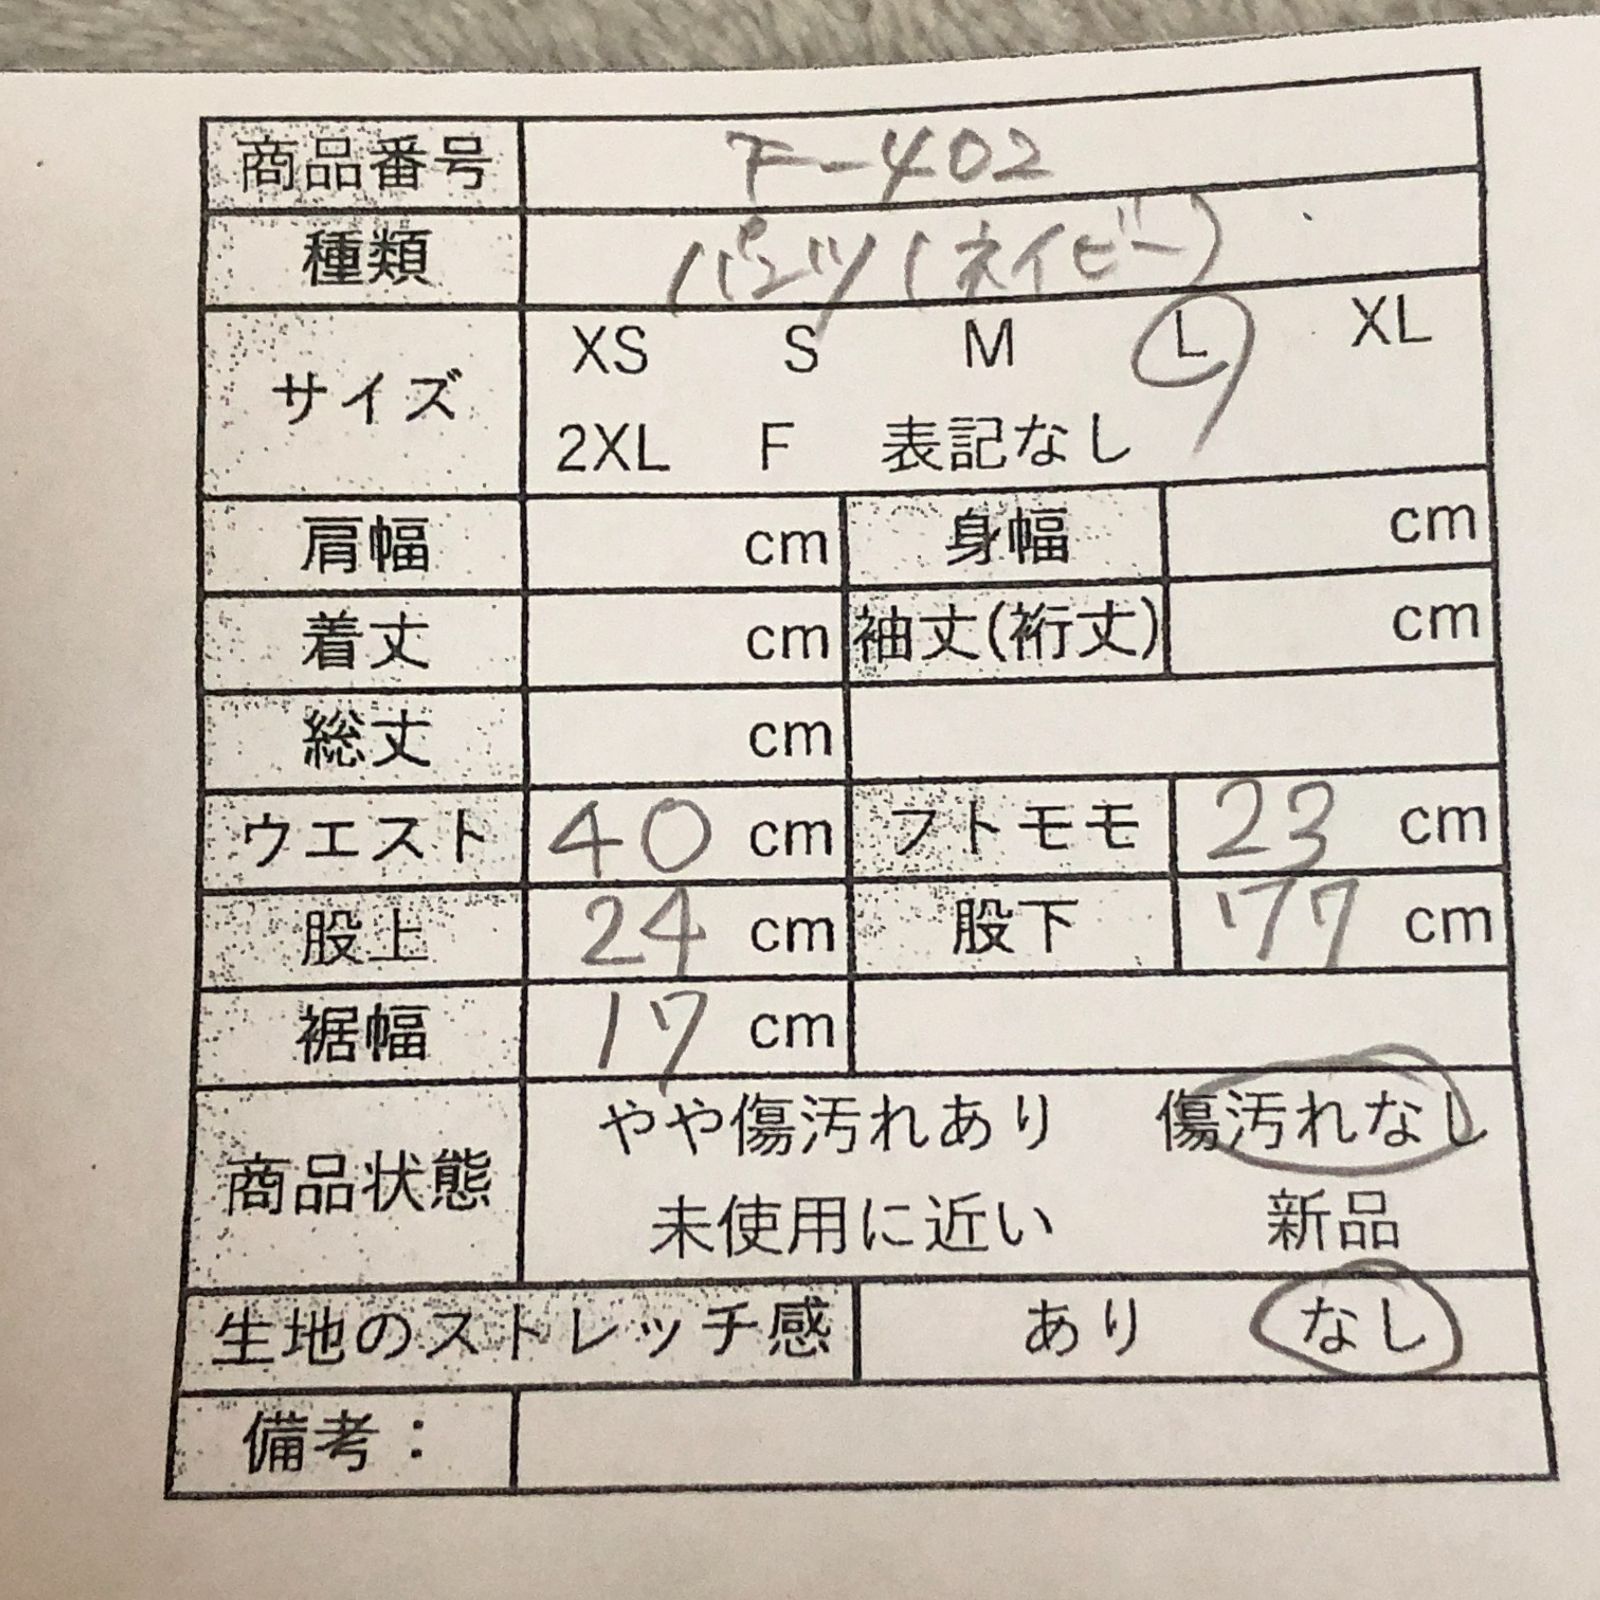 商品番号 F-402
種類 パンツ(ネイビー)
サイズ XS S M L XL
2XL F 表記なし
肩幅 cm 身幅 cm
着丈 cm 袖丈(裄丈) cm
総丈 cm
ウエスト 40 cm フトモモ 23 cm
股上 24 cm 股下 77 cm
裾幅 17 cm
商品状態 やや傷汚れあり 傷汚れなし
未使用に近い 新品
生地のストレッチ感 あり なし
備考：